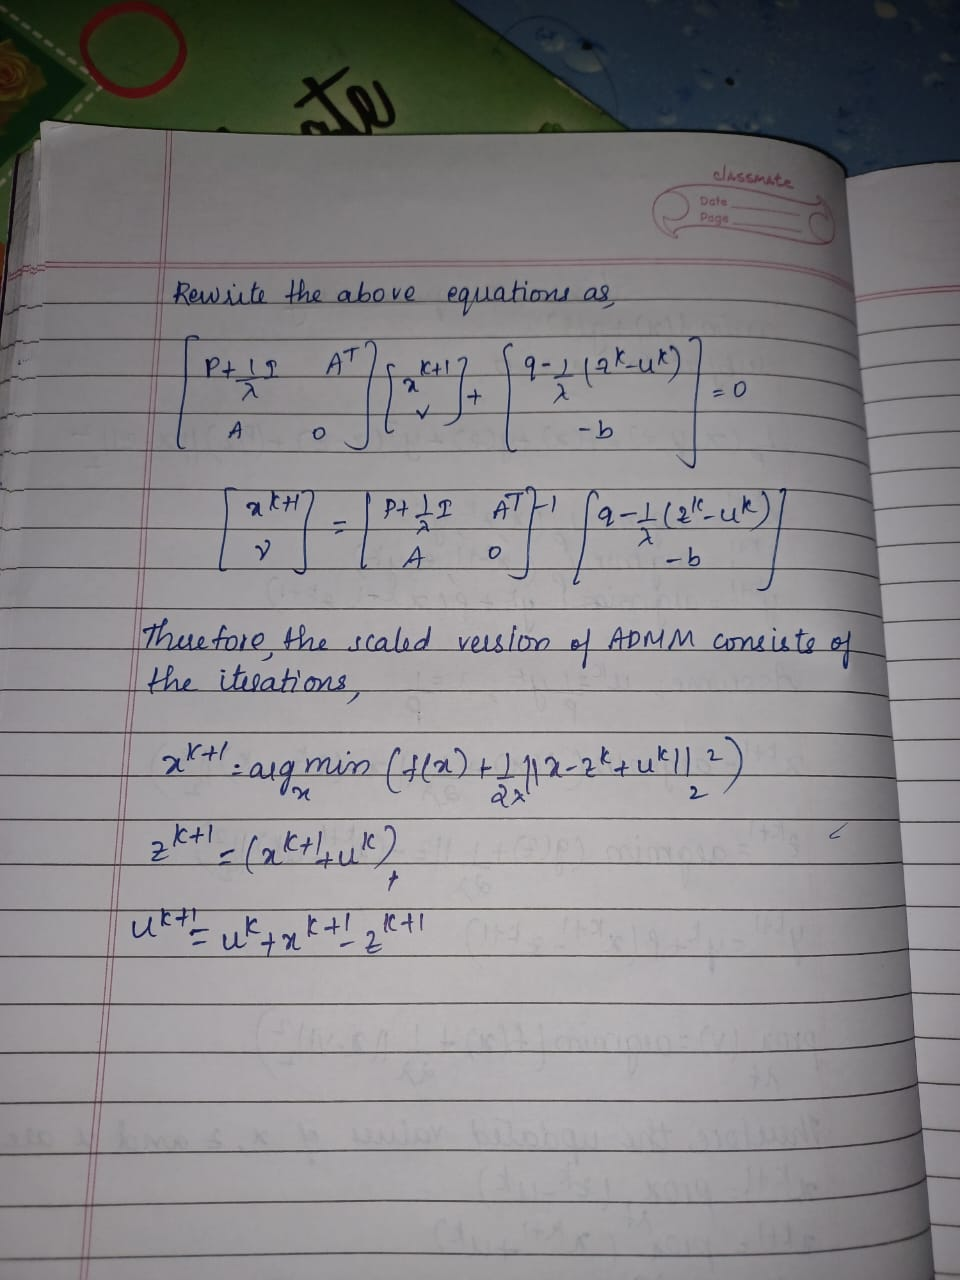 ate
classmate
Date
Page
Rewrite the above equations as,
[P+1/λ I  Aᵀ; A  0] [x^{k+1}; ν] + [q-1/λ (z^k-u^k); -b] = 0
[x^{k+1}; ν] = [P+1/λ I  Aᵀ; A  0]^{-1} [q-1/λ (z^k-u^k); -b]
Therefore, the scaled version of ADMM consists of
the iterations,
x^{k+1} = arg min_x (f(x) + 1/2λ ||x-z^k+u^k||_2^2)
z^{k+1} = (x^{k+1}+u^k)_+
u^{k+1} = u^k+x^{k+1}-z^{k+1}